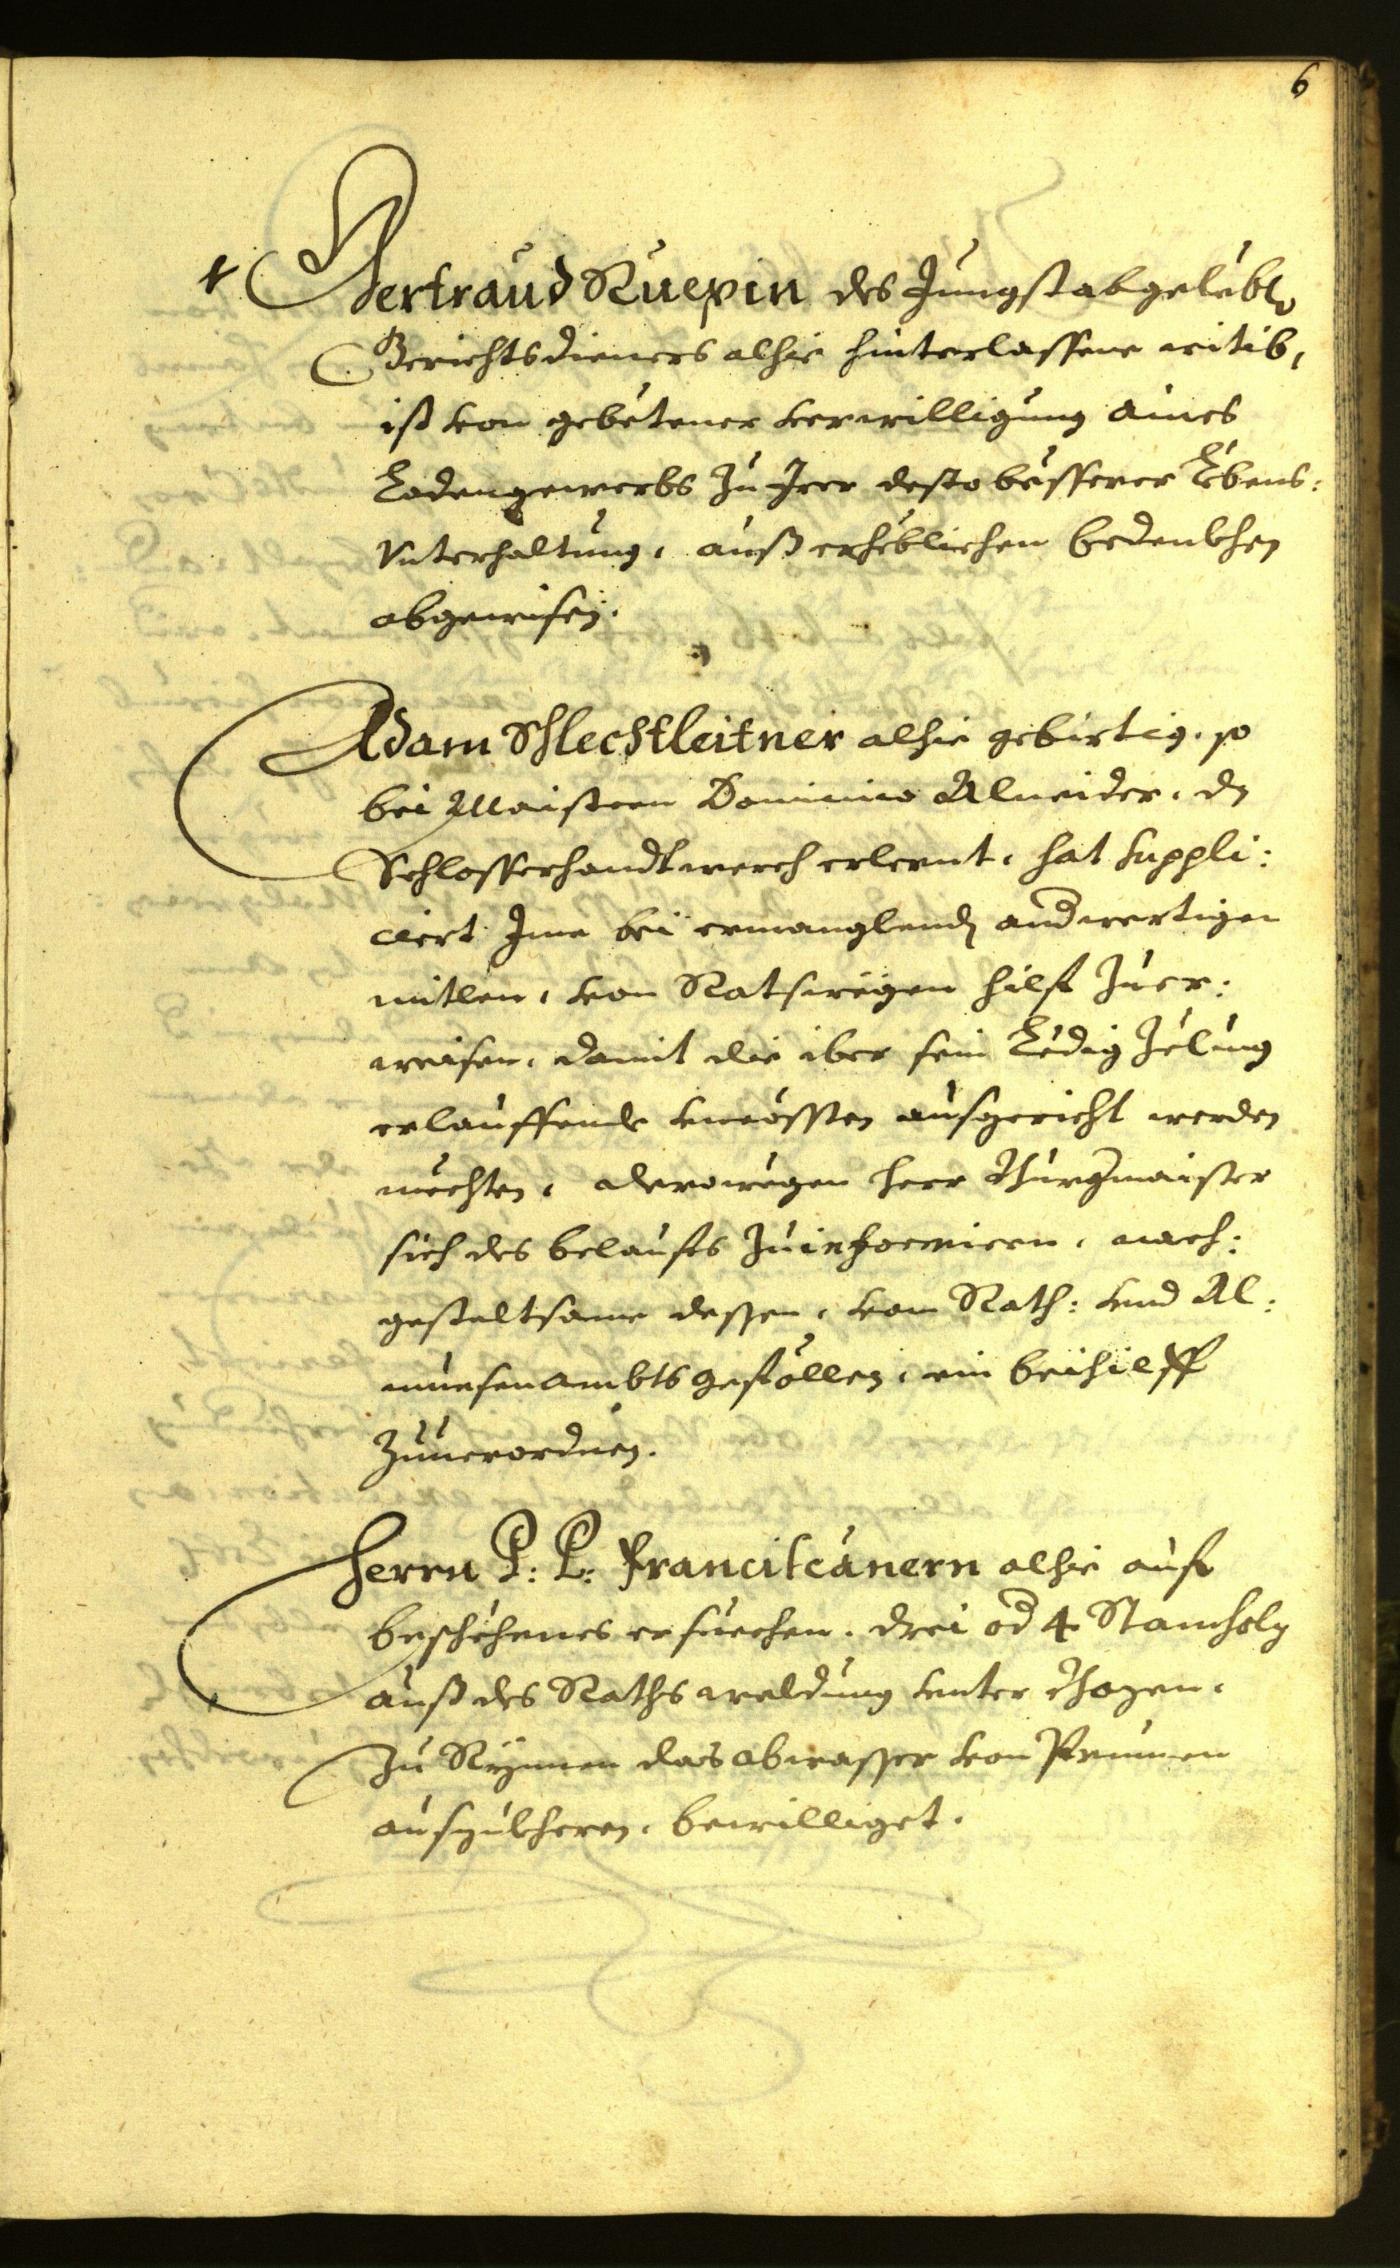 6
Gertraud Ruepin des Jungst abgelebten
Gerichtsdieners alhie hinterlassene witib,
ist von gebetener verwilligung aines
Ladengewerbs zu Irer desto besserer Lebens:
Vnterhaltung, auß erheblichen bedenkhen
abgewisen.
Adam Schlechtleitner alhie gebirtig, so
bei Maistern Dominico Alneider, dz
Schlosserhandtwerch erlernt, hat suppli:
ciert Ime bei ermanglendn anderwertigen
mitlen, von Ratswegen hilf zuer:
weisen, damit die iber sein Ledig zelung
erlauffende vncossten ausgericht werden
mechten, derowegen herr Burgmaister
sich des belaufs zuinformiern, nach:
gestaltsame dessen, von Rath: vnd Al:
muesenambts gefellen, ein beihilff
zuuerordnen.
Herrn P: P: Franciscanern alhie auf
beschehenes ersuechen, drei od 4 Stamholz
auß des Raths waldung vnter Bozen,
zu Rynnen das abwasser von Prunnen
auszukheren, bewilliget.